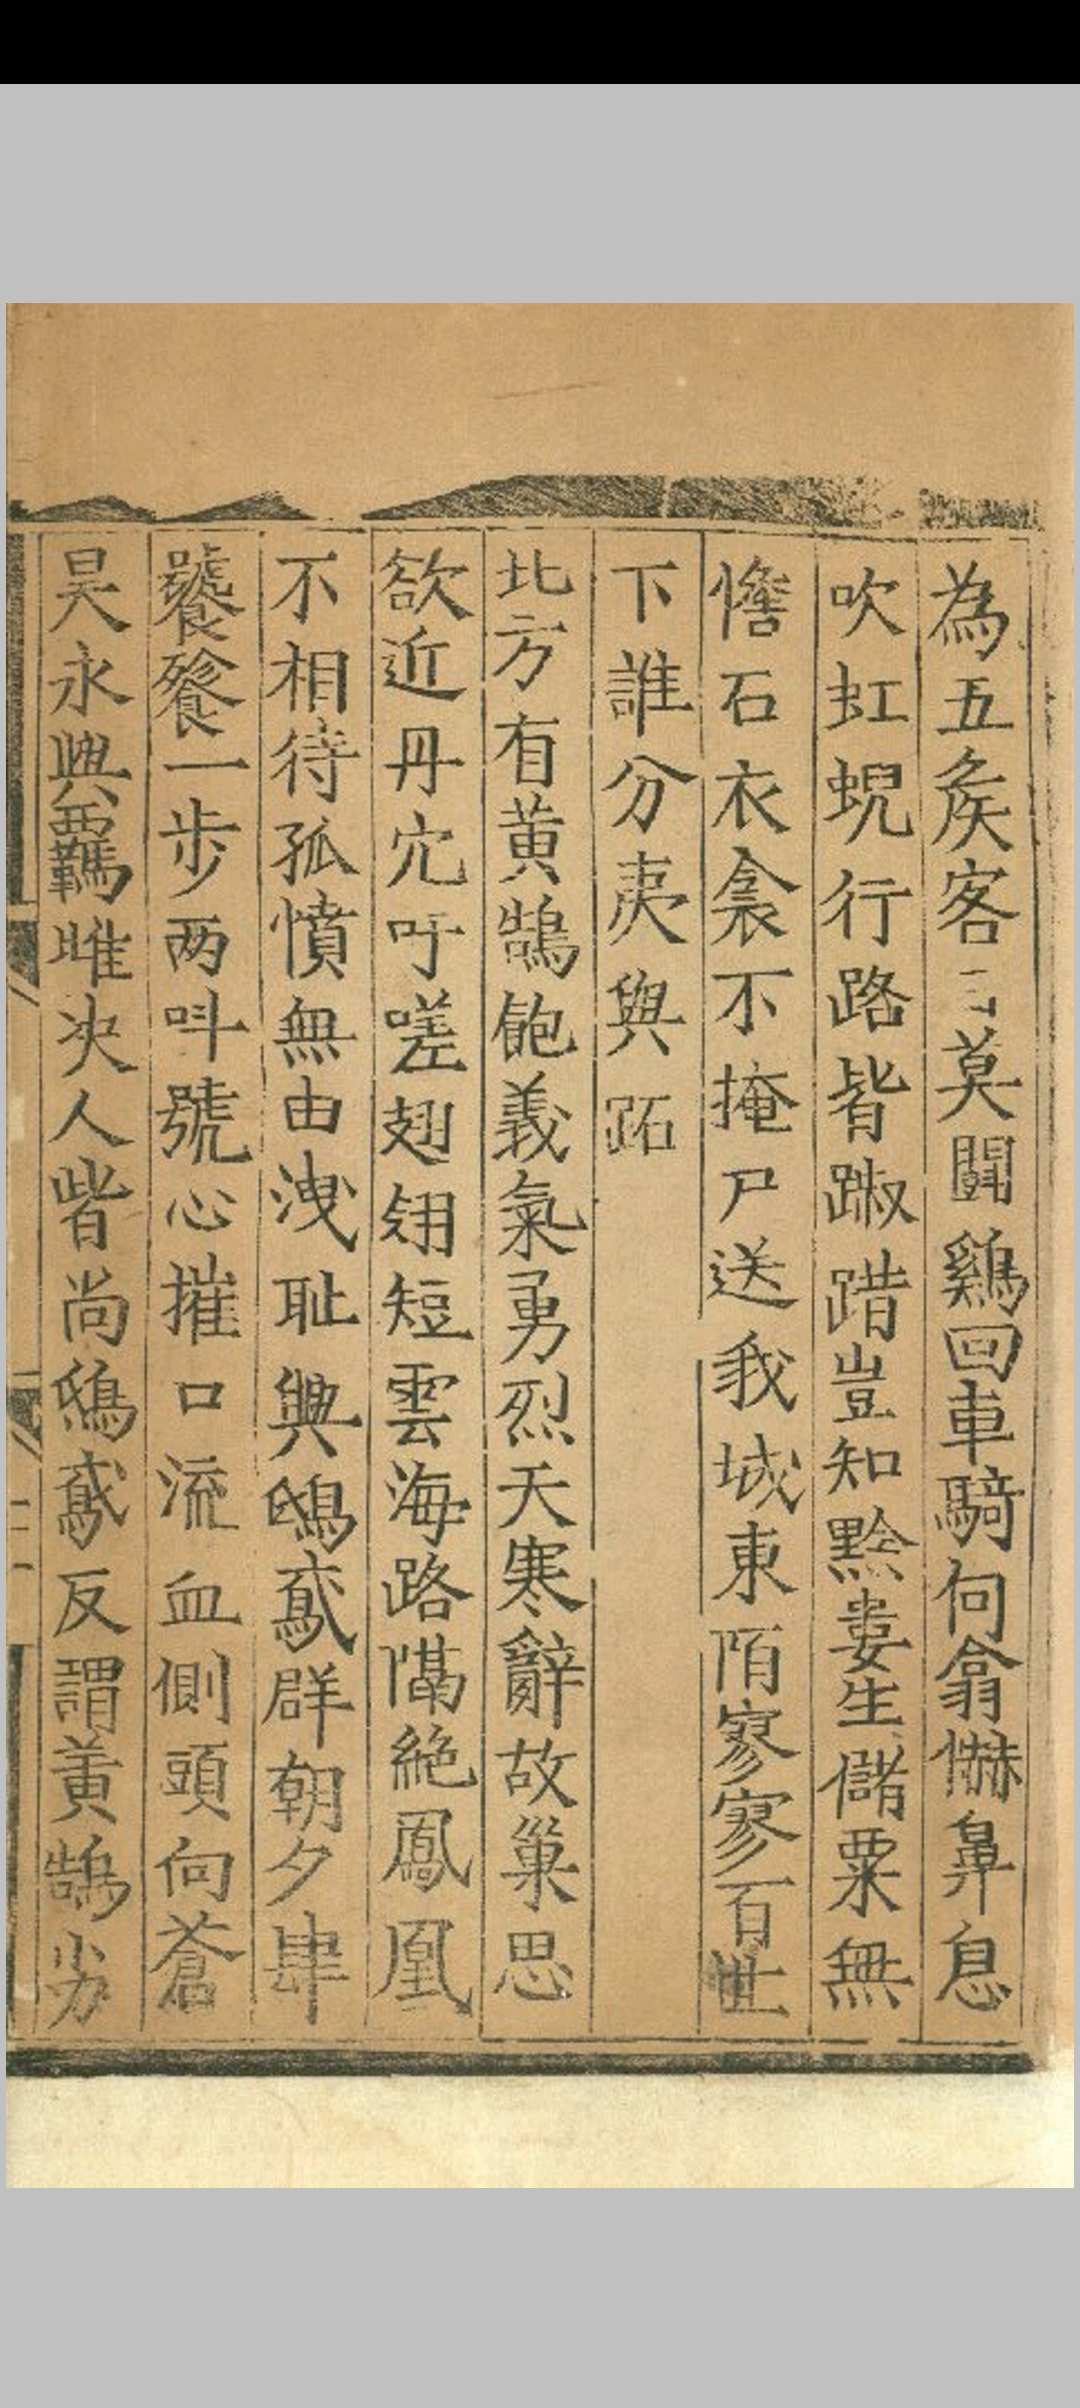 為五矦客日莫鬪鷄回車騎何翕懗鼻息
吹虹蜺行路皆踧踖豈知黔婁生儲粟無
儋石衣衾不掩尸送我城東陌寥寥百世
下誰分夷與跖
北方有黄鵠飽義氣勇烈天寒辭故巢思
欲近丹穴吁嗟翅翎短雲海路隔絶鳳凰
不相待孤憤無由洩耻與鴟鳶群朝夕肆
饕餮一步兩叫號心摧口流血側頭向蒼
昊永與羈雌决人皆尚鴟鳶反謂黄鵠劣